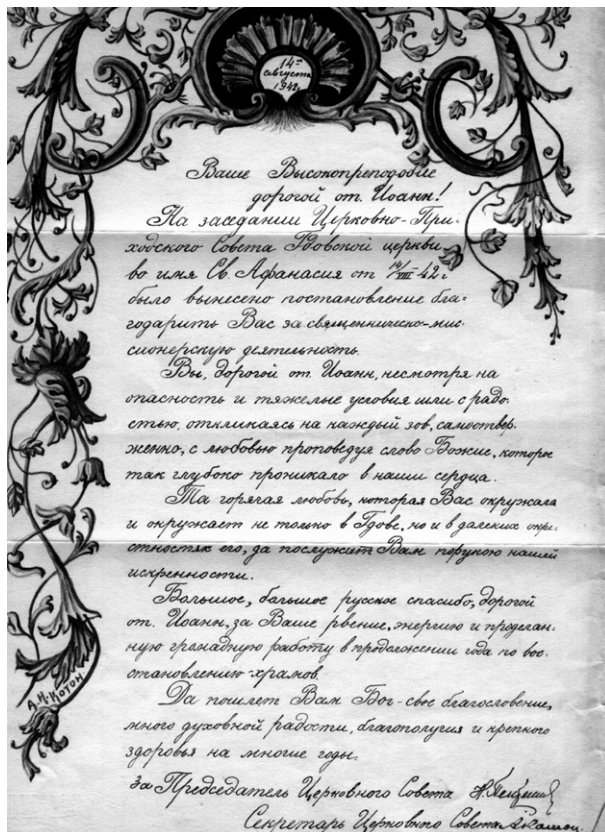 14го
августа
1942г.
Ваше Высокопреподобие
дорогой от. Иоанн!
На заседании Церковно-При-
ходского Совета Гдовской церкви
во имя Св. Афанасия от 14/VIII-42г.
было вынесено постановление бла-
годарить Вас за священническо-мис-
сионерскую деятельность.
Вы, дорогой от. Иоанн, несмотря на
опасность и тяжелые условия шли с радо-
стью, откликаясь на каждый зов, самоотвер-
женно, с любовью проповедуя слово Божие, которое
так глубоко проникало в наши сердца.
Та горячая любовь, которая Вас окружала
и окружает не только в Гдове, но и в далеких окре-
стностях его, да послужит Вам порукою нашей
искренности.
Большое, большое русское спасибо, дорогой
от. Иоанн, за Ваше рвение, энергию и проделан-
ную громадную работу в продолжении года по вос-
становлению храмов.
Да пошлет Вам Бог свое благословение,
много духовной радости, благополучия и крепкого
здоровья на многие годы.
За Председатель Церковного Совета
Секретарь Церковного Совета
А.Н. Котон